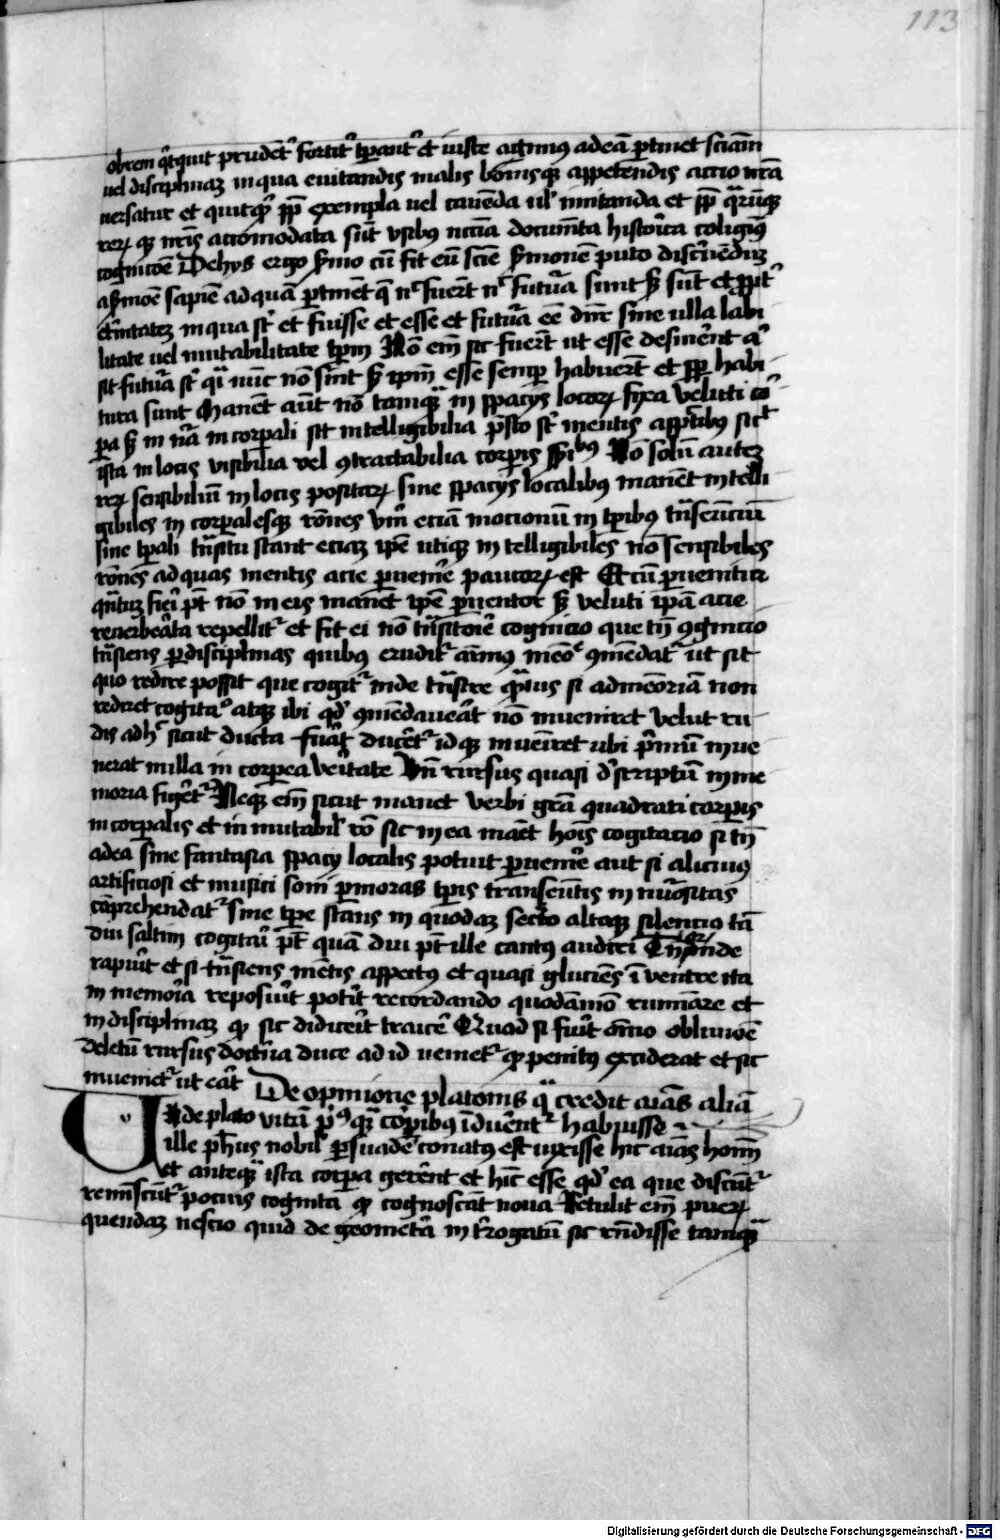 113
obrem qͥtquit prudēt᷑ fortit᷑ tꝑant᷑ et iuste agimꝰ ad eā ꝑtinet sciām
uel disciplinaꝫ in qua euitandis malis bonisqꝫ appetendis actio nr̄a
uersatur et quitqͥᷣ ꝓpꝑ exempla uel cauenda ul᷑ imitanda et ꝓpꝑ qͣrūqꝫ
reꝝ qꝫ nr̄is accōmodata sūt vsibꝰ nccīā documēta historica coligimꝰ
cognicōe De hys ergo ẜmo cū fit eū sciē ẜmonē puto discernēduꝫ
a ẜmōe sapiē ad quā ꝑtinēt q̄ nͨ fuer̄t nͨ futura sunt sꝫ sūt et ꝓpt᷑
et᷑nitateꝫ in qua st᷑ et fuisse et esse et futura eē dn̄r sine ulla labi
litate uel mutabilitate tꝑm Nō em̄ sic fuer̄t ut esse desinerēt aͬ
sic futura st᷑ qͣi nūc nō sint sꝫ ip̄m esse semꝑ habuer̄t et sꝑ habi
tura sunt Manēt aūt nō tamqͣꝫ in spacys locoꝝ fixa veluti cōͬ
ꝑa sꝫ in nr̄a in corꝑali sic intelligibilia p̄sto st᷑ mentis asp̄tibꝰ sicͭ
ista in locis visibilia vel ꝯtractabilia corꝑis sp̄ibꝰ Nō solū auteꝫ
reꝝ sensibiliū in locis positaꝝ sine spacys localibꝰ manēt intelli
gibiles in corꝑalesqꝫ rōnes vm̄ eciā mocionū in tꝑibꝰ tn̄seunciū
sine tꝑali tn̄situ stant eciaꝫ ip̄e utiqꝫ intelligibiles nō sensibiles
rōnes ad quas mentis acie ꝑuenire paucoꝝ est Et cū ꝑuenitur
qn̄tuꝫ fieri pt̄ nō in eis manet ip̄e ꝑuentor sꝫ veluti ip̄a acie
reuerberata repellit᷑ et fit ei nō tn̄sitorie cognicio que tn̄ ꝯgnicio
tn̄siens ꝑ disciplinas quibꝰ erudit᷑ aīmꝰ meōͤ ꝯmēdat᷑ ut sit
quo redire possit que cogit᷑ inde tn̄sire qͣuis si ad meōriam non
rediret cogitaͦ atqꝫ ibi qd̓ ꝯmēdauerāt nō inueniret velut ru
dis ad hͨ sicut ducta fuāt ducēt᷑ idqꝫ inueniret ubi pͥmū inue
nerat in illa in corporea veritate vn̄ rursus quasi d̓scriptū in me
moria figēt᷑ Neqꝫ em̄ sicut manet verbi grā quadrati corꝑis
in corꝑalis et in mutabil᷑ rō sic in ea manēt hoīs cogitacio si tn̄
ad ea sine fantasia spacy localis potuit ꝑuenire aut si alicuius
artificiosi et musici soni ꝑ moras tꝑis transeuntis in nūositas
comprehendat᷑ sine tꝑe stans in quodaꝫ secreto altoqꝫ silencio tā
diu saltim cogitari pt̄ quā diu pt̄ ille cantꝰ audiri inde
rapuit et si tn̄siens mētis aspectꝰ et quasi gluciēs ī ventre ita
in memoria reposuit potit recordando quodāmō ruminare et
in disciplinaꝫ qͦ sic didicerit traicē Quod si fuit om̄io obliuiōe
deletū rursus doctrina duce ad id uenietur qͦ penitꝰ exciderat et sic
inueniet᷑ ut eāt De opinione platonis qͥ credit aīas aliā
Vnde plato vitā pͥꝰqͣꝫ corꝑibus īduērent᷑ habuisse
ille phūs nobil᷑ ꝑsuadē conatꝰ est uixisse hic aīas hoīm
et anteqͣꝫ ista corꝑa gerēnt et hīc esse qd̓ ea que discūt᷑
reminscūt᷑ pocius cognita qͦ cognoscāt noua Retulit em̄ pueꝝ
quendaꝫ nescio quid de geometria in t᷑rogatū sic rn̄disse tamqͣꝫ
Digitalisierung gefördert durch die Deutsche Forschungsgemeinschaft - DFG